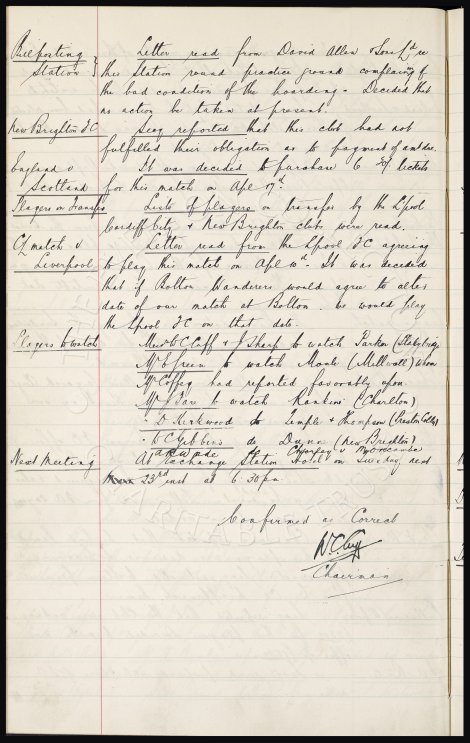 Billposting Letter read from David Allen & Sons Ld re
Station } this Station round practice ground complaing of
the bad condition of the hoarding. Decided that
no action be taken at present.
New Brighton FC Secy reported that this club had not
fulfilled their obligation as to payment of amt due.
England v It was decided to purchase 6 tickets
Scotland for this match on Apl 17th.
Players on Transfer Lists of players on transfer by the Lpool
Cardiff City & New Brighton clubs were read.
match v Letter read from the Lpool FC agreeing
Liverpool to play this match on Apl It was decided
that if Bolton Wanderers would agree to alter
date of our match at Bolton we would play
the Lpool FC on that date.
Players to watch Messrs W C Cuff & J Sharp to watch Parker (Stalybridge
Mr E Green to watch Monk (Millwall) whom
Mr Coffey had reported favorably upon.
Mr Bar to watch Rankin (Charlton)
D Kirkwood to Temple & Thompson (Preston Colly)
W C Gibbins do Dunn (New Brighton)
Chorley v Morecambe
Next Meeting At Exchange Station Hotel on Tuesday next
23rd inst at 6.30 pm.
CHARITABLE
Confirmed as Correct
W.C. Cuff
Chairman